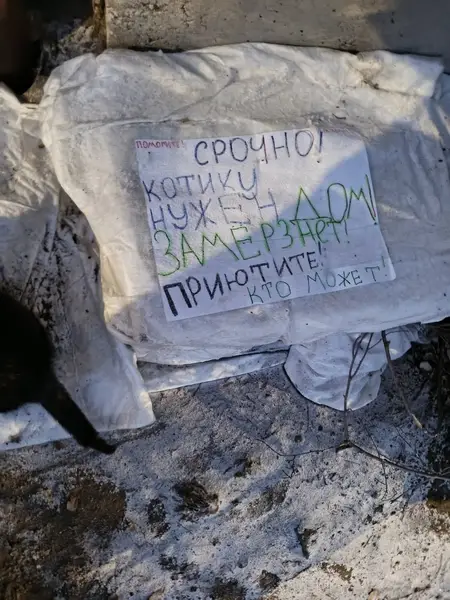 ПОМОГИТЕ!
СРОЧНО!
КОТИКУ
НУЖЕН ДОМ!
ЗАМЕРЗАЕТ!
ПРИЮТИТЕ!
КТО МОЖЕТ!